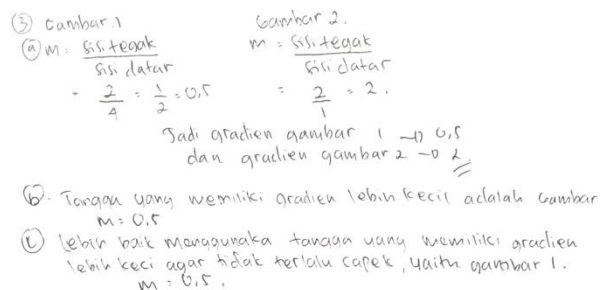 ③ Gambar 1 Gambar 2.
ⓐ m = sisi tegak / sisi datar m = sisi tegak / sisi datar
= 2/4 = 1/2 = 0,5 = 2/1 = 2.
Jadi gradien gambar 1 → 0,5
dan gradien gambar 2 → 2
ⓑ. Tangga yang memiliki gradien lebih kecil adalah Gambar
m = 0,5
ⓒ lebih baik menggunaka tangga yang memiliki gradien
lebih keci agar tidak terlalu capek, yaitu gambar 1.
m = 0,5.